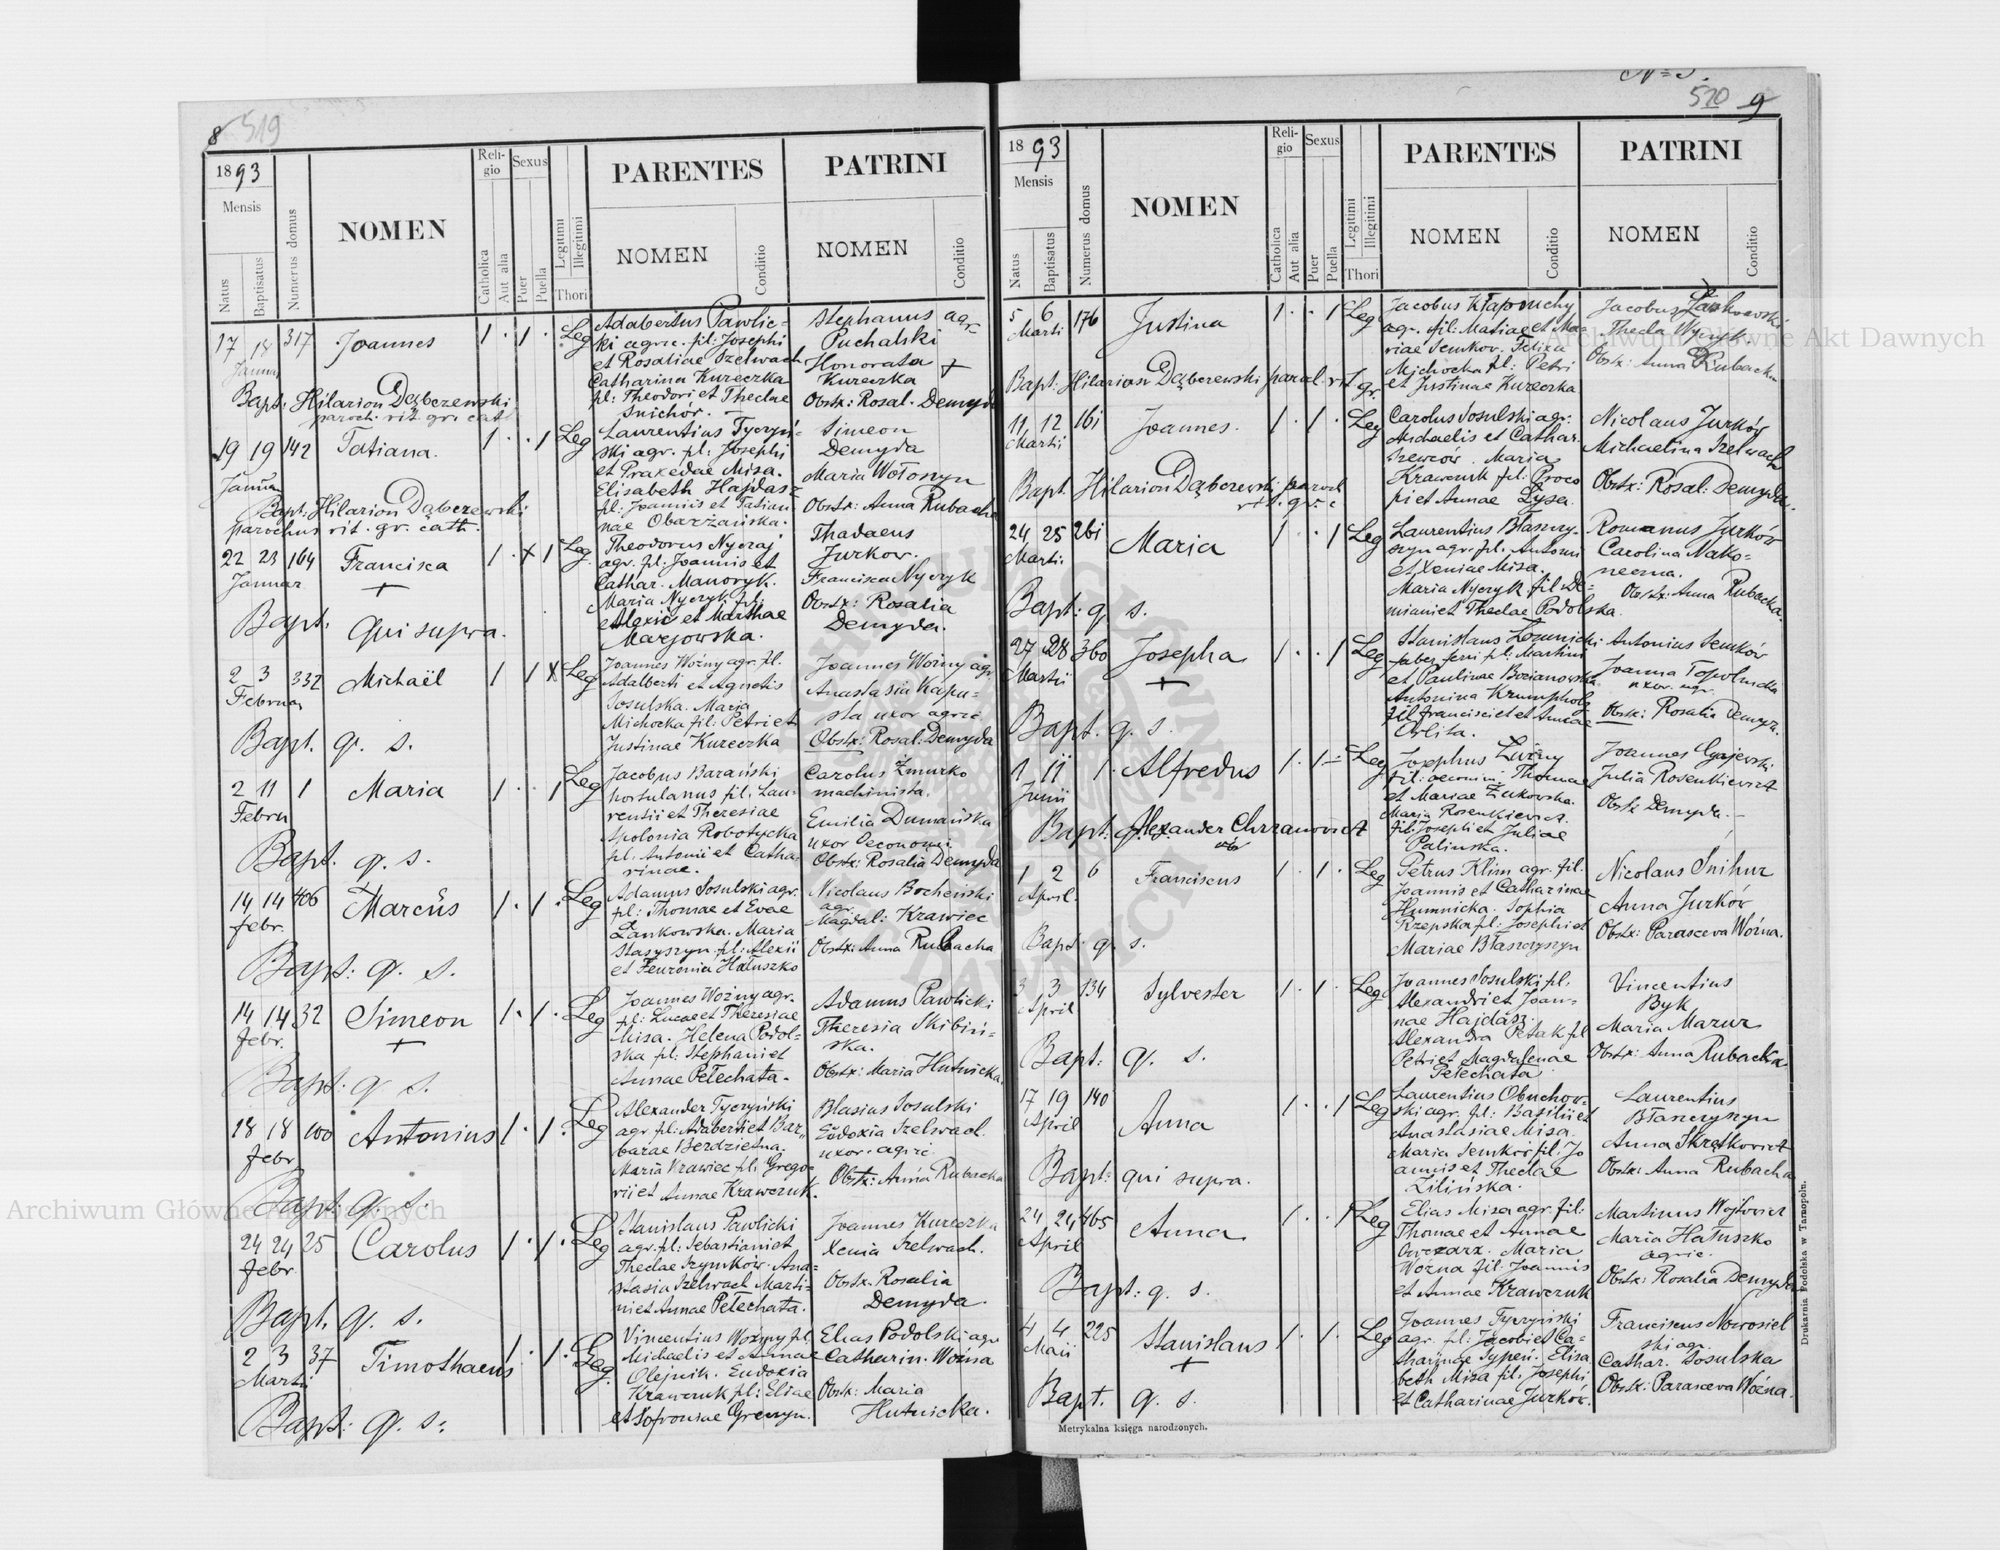 8 519
1893
Mensis
Natus
Baptisatus
Numerus domus
NOMEN
Religio
Catholica
Aut alia
Sexus
Puer
Puella
Legitimi
Illegitimi
Thori
PARENTES
NOMEN
Conditio
PATRINI
NOMEN
Conditio
17 18 317 Joannes 1 . 1 . Leg
Januar
Adabertus Pawlic-
ki agric. fil: Josephi
et Rosaliae Szelwach
Catharina Kureczka
fil: Theodori et Theclae
Snichór.
Stephanus agr.
Puchalski
Honorata +
Kureczka
Obstx: Rosal. Demyda
Bapt: Hilarion Dąbczewski
paroch. rit. gr. cath
19 19 142 Tatiana. 1 . . 1 Leg
Januar
Laurentius Tyczyń-
ski agr. fil: Josephi
et Praxedae Misa.
Elisabeth Hajdasz
fil: Joannis et Tatian
nae Obarzańska.
Simeon
Demyda
Maria Wołoszyn
Obstx: Anna Rubacha
Bapt: Hilarion Dąbczewski
parochus rit. gr. cath.
22 23 164 Francisca 1 . + 1 Leg
Januar +
Theodorus Nyczaj
agr. fil: Joannis et
Cathar. Manoryk.
Maria Nyczyk fil:
Alexii et Marthae
Mazjowska.
Thadaeus
Jurkov.
Francisca Nyczyk
Obstx: Rosalia
Demyda.
Bapt. qui supra.
2 3 332 Michaël 1 1 x Leg
Februar
Joannes Woźny agr. fil.
Adalberti et Agnetis
Sosulska. Maria
Michocka fil: Petri et
Justinae Kureczka
Joannes Woźny agr.
Anastasia Kapu-
sta uxor agric
Obstx: Rosal: Demyda
Bapt. q. s.
2 11 1 Maria 1 . . 1 Leg
Febru
Jacobus Barański
hortulanus fil. Lau-
rentii et Theresiae
Apolonia Robotycka
fil. Antonii et Catha-
rinae.
Carolus Żmurko
machinista.
Emilia Dumańska
uxor Oeconomi
Obstx: Rosalia Demyda
Bapt. q. s.
14 14 406 Marcus 1 . 1 . Leg
febr.
Adamus Sosulski agr.
fil: Thomae et Evae
Łankowska. Maria
Stasyszyn fil: Alexii
et Fevronia Hałuszko
Nicolaus Bocheński
agr.
Magdal: Krawiec
Obstx: Anna Rubacha
Bapt: q. s.
14 14 32 Simeon 1 . 1 . Leg
febr. +
Joannes Woźny agr.
fil: Lucae et Theresiae
Misa. Helena Podol-
ska fil: Stephani et
Annae Pełechata.
Adamus Pawlicki
Theresia Skibiń-
ska.
Obstx: Maria Hutnicka.
Bapt: q. s.
18 18 100 Antonius 1 . 1 . Leg
febr
Alexander Tyczyński
agr fil: Adaberti et Bar
barae Berdzietna.
Maria Krawiec fil: Grego-
rii et Annae Krawczuk.
Blasius Sosulski
Eudoxia Szelwach
uxor. agric.
Obstx: Anna Rubacha
Bapt. q. s.
24 24 25 Carolus 1 . 1 . Leg
febr
Stanislaus Pawlicki
agr. fil: Sebastiani et
Theclae Szymków. Ana-
stasia Szelwach Marti-
ni et Annae Pełechata.
Joannes Kureczka
Xenia Szelwach.
Obstx. Rosalia
Demyda.
Bapt. q. s.
2 3 37 Timothaeus 1 . 1 . Leg.
Martii
Vincentius Woźny fil.
Michaelis et Annae
Olejnik. Eudoxia
Krawczuk fil: Eliae
et Sofroniae Greszyn.
Elias Podolski agr
Catharin. Woźna
Obstx: Maria
Hutnicka.
Bapt: q. s:
520 9
1893
Mensis
Natus
Baptisatus
Numerus domus
NOMEN
Religio
Catholica
Aut alia
Sexus
Puer
Puella
Legitimi
Illegitimi
Thori
PARENTES
NOMEN
Conditio
PATRINI
NOMEN
Conditio
5 6 176 Justina 1 . . 1 Leg
Marti
Jacobus Kłapouchy
agr. fil. Matiae et Ma-
riae Semkov. Felixa
Michocka fil: Petri
et Justinae Kureczka
Jacobus Łankowski
Thecla
Obstx: Anna Rubacha
Bapt: Hilarion Dąbczewski paroch. rit gr.
11 12 161 Joannes. 1 . 1 . Leg
Martii
Carolus Sosulski agr:
Michaelis et Cathar.
Szewców. Maria
Krawczuk fil: Proco
pi et Annae Łysa.
Nicolaus Jurków
Michaelina Szelwach
Obstx: Rosal: Demyda.
Bapt. Hilarion Dąbczewski paroch
rit. gr. c
24 25 261 Maria 1 . . 1 Leg
Martii
Laurentius Błaszczy-
szyn agr. fil: Antonii
et Xeniae Misa.
Maria Nyczyk fil De-
miani et Theclae Podolska.
Romanus Jurków
Carolina Nako-
neczna.
Obstx: Anna Rubacka.
Bapt: q s.
27 28 360 Josepha 1 . . 1 Leg
Martii +
Stanislaus Łozinnicki
faber ferri fil: Martini
et Paulinae Bocianowska
Antonina Krumpholz
fil. Francisci et Annae
Orlita.
Antonius Semków
Joanna Topolnicka
uxor. agr.
Obstx: Rosalia Demyda.
Bapt. q. s.
1 11 1. Alfredus 1 . 1 - Leg
Junii
Josephus Luźny
fil: oeconomi Thomae
et Mariae Żukowska.
Maria Rosenkiewicz.
fil. Josephi et Juliae
Palinska.
Joannes Gajewski
Julia Rosenkiewicz
Obstx Demyda.
Bapt: Alexander Chrzanowicz
1 2 6 Franciscus 1 . 1 . Leg
April.
Petrus Klim agr. fil.
Joannis et Catharinae
Humnicka. Sophia
Rzepska fil: Josephi et
Mariae Błaszczyszyn
Nicolaus Snihur
Anna Jurków
Obstx: Parasceva Woźna.
Bapt: q. s.
3 3 134 Sylvester 1 . 1 . Leg.
April
Joannes Sosulski fil.
Alexandri et Joan-
nae Hajdasz.
Alexandra Petak fil
Petri et Magdalenae
Pełechata
Vincentius
Byk
Maria Mazur
Obstx: Anna Rubacka
Bapt: q. s.
17 19 140 Anna 1 . . 1 Leg
April
Laurentius Obuchow-
ski agr. fil: Basilii et
Anastasiae Misa.
Maria Semków fil. Jo
annis et Theclae
Zilińska.
Laurentius
Błaszczyszyn
Anna Skrętkowicz
Obstx: Anna Rubacha
Bapt: qui supra.
24 24 465 Anna 1 . . 1 Leg
April
Elias Misa agr. fil:
Thomae et Annae
Owczarz. Maria
Woźna fil: Joannis
et Annae Krawczuk
Martinus Wojtowicz
Maria Hałuszko
agric.
Obstx: Rosalia Demyda
Bapt: q. s.
4 4 225 Stanislaus 1 . 1 . Leg
Maii +
Joannes Tyczyński
agr. fil: Jacobi et Ca-
tharinae Sypeń. Elisa
beth Misa fil. Josephi
et Catharinae Jurków.
Franciscus Nowosiel
ski agr.
Cathar. Sosulska
Obstx: Parasceva Woźna.
Bapt. q. s.
Metrykalna księga narodzonych.
Drukarnia Podolska w Tarnopolu.
Archiwum Główne Akt Dawnych
Archiwum Główne Akt Dawnych